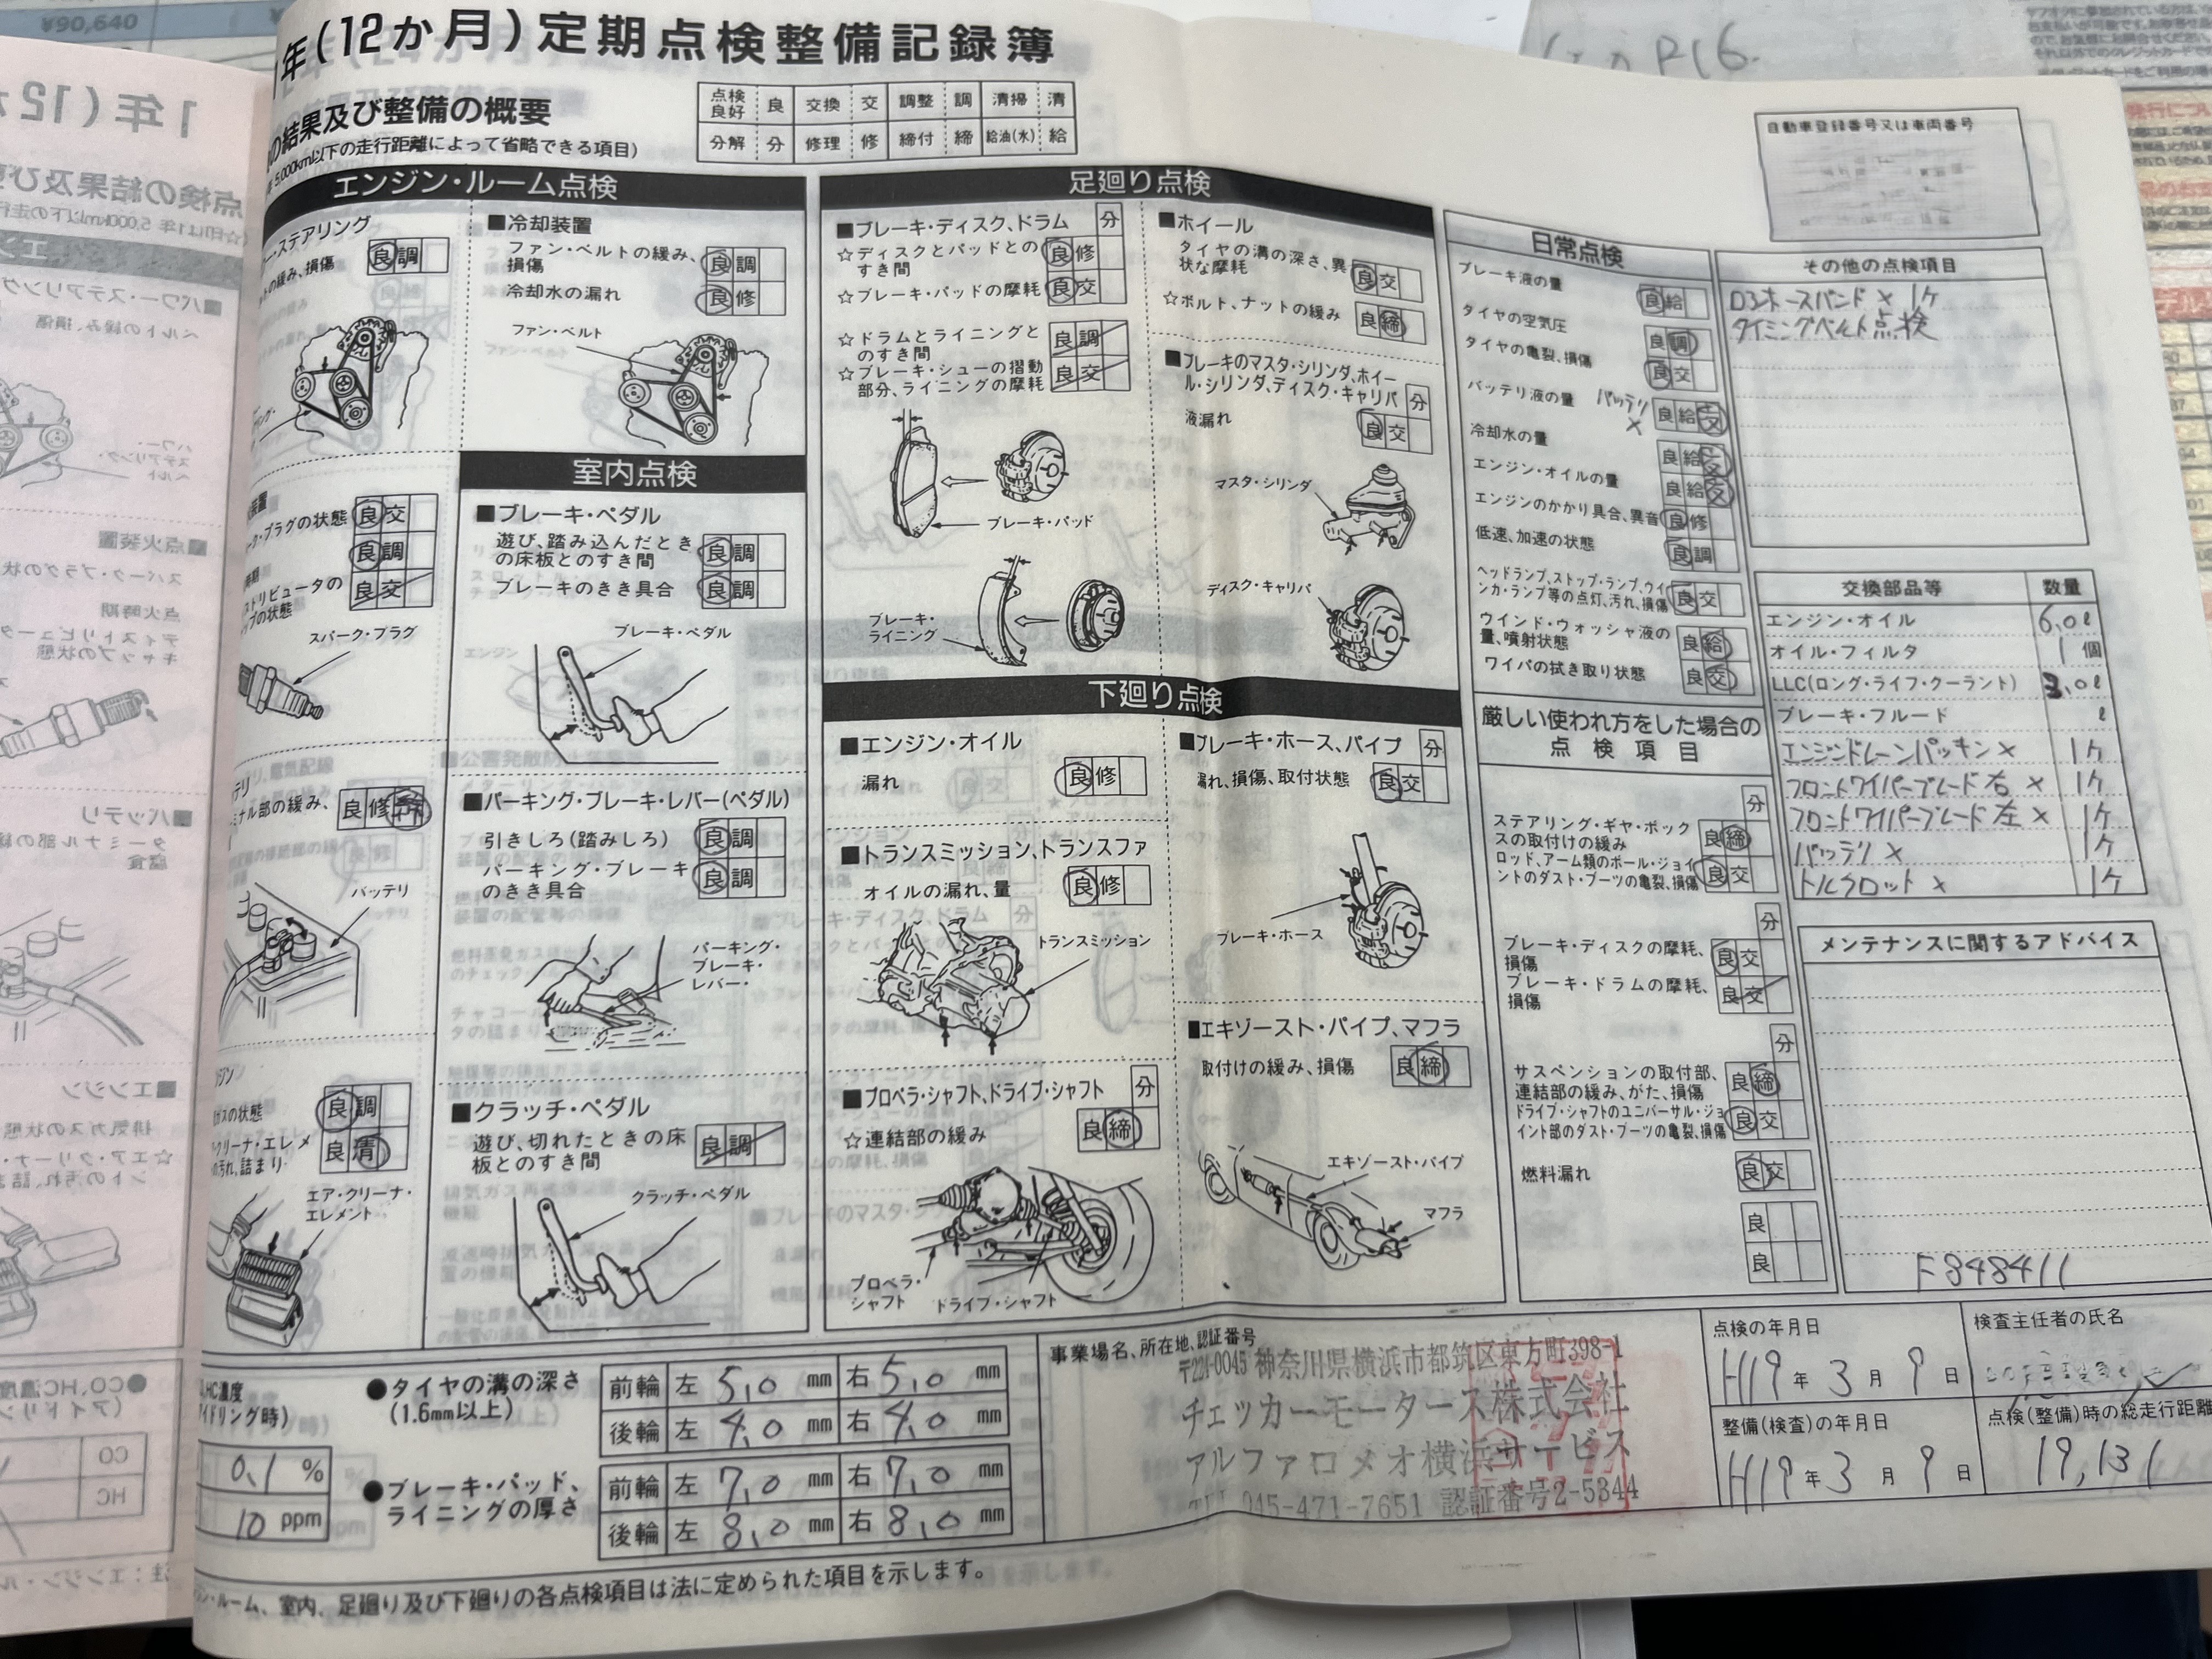 ¥90,640
1年(12か月)定期点検整備記録簿
の結果及び整備の概要
5,000km以下の走行距離によって省略できる項目)
点検良好 良 交換 交 調整 調 清掃 清
分解 分 修理 修 締付 締 給油(水) 給
自動車登録番号又は車両番号
エンジン・ルーム点検
ステアリング
の緩み、損傷 良 調
■冷却装置
ファン・ベルトの緩み、
損傷 良 調
冷却水の漏れ 良 修
ファン・ベルト
装置
プラグの状態 良 交
良 調
ストリビュータの
ップの状態 良 交
スパーク・プラグ
ミナル部の緩み、 良 修
バッテリ
ガスの状態 良 調
クリーナ・エレメ
の汚れ、詰まり 良 清
エア・クリーナ・
エレメント
室内点検
■ブレーキ・ペダル
遊び、踏み込んだとき
の床板とのすき間 良 調
ブレーキのきき具合 良 調
ブレーキ・ペダル
■パーキング・ブレーキ・レバー(ペダル)
引きしろ(踏みしろ) 良 調
パーキング・ブレーキ
のきき具合 良 調
パーキング・
ブレーキ・
レバー・
■クラッチ・ペダル
遊び、切れたときの床
板とのすき間 良 調
クラッチ・ペダル
足廻り点検
■ブレーキ・ディスク、ドラム 分
☆ディスクとパッドとの
すき間 良 修
☆ブレーキ・パッドの摩耗 良 交
☆ドラムとライニングと
のすき間 良 調
☆ブレーキ・シューの摺動
部分、ライニングの摩耗 良 交
ブレーキ・パッド
ブレーキ・
ライニング
■ホイール
タイヤの溝の深さ、異
状な摩耗 良 交
☆ボルト、ナットの緩み 良 締
■ブレーキのマスタ・シリンダ、ホイー
ル・シリンダ、ディスク・キャリパ 分
液漏れ 良 交
マスタ・シリンダ
ディスク・キャリパ
下廻り点検
■エンジン・オイル
漏れ 良 修
■トランスミッション、トランスファ
オイルの漏れ、量 良 修
トランスミッション
■プロペラ・シャフト、ドライブ・シャフト 分
☆連結部の緩み 良 締
プロペラ・
シャフト
ドライブ・シャフト
■ブレーキ・ホース、パイプ 分
漏れ、損傷、取付状態 良 交
ブレーキ・ホース
■エキゾースト・パイプ、マフラ
取付けの緩み、損傷 良 締
エキゾースト・パイプ
マフラ
日常点検
ブレーキ液の量 良 給
タイヤの空気圧 良 調
タイヤの亀裂、損傷 良 交
バッテリ液の量 バッテリ × 良 給 交
冷却水の量 良 給 交
エンジン・オイルの量 良 給 交
エンジンのかかり具合、異音 良 修
低速、加速の状態 良 調
ヘッドランプ、ストップ・ランプ、ウイ
ンカ・ランプ等の点灯、汚れ、損傷 良 交
ウインド・ウォッシャ液の
量、噴射状態 良 給
ワイパの拭き取り状態 良 交
厳しい使われ方をした場合の
点検項目
分
ステアリング・ギヤ・ボック
スの取付けの緩み 良 締
ロッド、アーム類のボール・ジョイ
ントのダスト・ブーツの亀裂、損傷 良 交
分
ブレーキ・ディスクの摩耗、
損傷 良 交
ブレーキ・ドラムの摩耗、
損傷 良 交
分
サスペンションの取付部、
連結部の緩み、がた、損傷 良 締
ドライブ・シャフトのユニバーサル・ジョ
イント部のダスト・ブーツの亀裂、損傷 良 交
燃料漏れ 良 交
良
良
その他の点検項目
ホースバンド × 1ケ
タイミングベルト点検
交換部品等 数量
エンジン・オイル 6,0ℓ
オイル・フィルタ 1個
LLC(ロング・ライフ・クーラント) 3,0ℓ
ブレーキ・フルード ℓ
エンジンドレーンパッキン× 1ケ
フロントワイパーブレード右 × 1ケ
フロントワイパーブレード左 × 1ケ
バッテリ × 1ケ
トルクロット × 1ケ
メンテナンスに関するアドバイス
F848411
HC濃度
アイドリング時)
0,1 %
10 ppm
●タイヤの溝の深さ
(1.6mm以上)
前輪 左 5,0 mm 右 5,0 mm
後輪 左 4,0 mm 右 4,0 mm
●ブレーキ・パッド、
ライニングの厚さ
前輪 左 7,0 mm 右 7,0 mm
後輪 左 8,0 mm 右 8,0 mm
事業場名、所在地、認証番号
〒224-0045 神奈川県横浜市都筑区東方町398-1
チェッカーモータース株式会社
アルファロメオ横浜サービス
TEL 045-471-7651 認証番号2-5344
点検の年月日
H19年 3月 9日
整備(検査)の年月日
H19年 3月 9日
検査主任者の氏名
点検(整備)時の総走行距離
19,131
ルーム、室内、足廻り及び下廻りの各点検項目は法に定められた項目を示します。